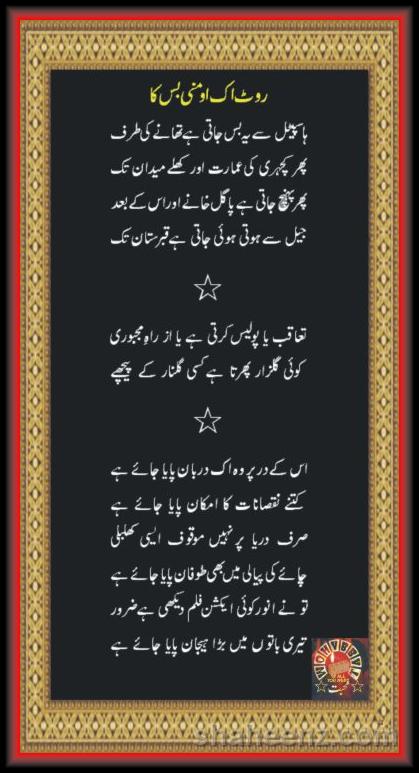 روٹ اک اومنی بس کا
ہاسپیٹل سے یہ بس جاتی ہے تھانے کی طرف
پھر کچہری کی عمارت اور کھلے میدان تک
پھر پہنچ جاتی ہے پاگل خانے اور اس کے بعد
جیل سے ہوتی ہوئی جاتی ہے قبرستان تک
تعاقب یا پولیس کرتی ہے یا از راہِ مجبوری
کوئی گلزار پھرتا ہے کسی گلنار کے پیچھے
اس کے در پر وہ اک دربان پایا جائے ہے
کتنے نقصانات کا امکان پایا جائے ہے
صرف دریا پر نہیں موقوف ایسی کھلبلی
چائے کی پیالی میں بھی طوفان پایا جائے ہے
تو نے انور کوئی ایکشن فلم دیکھی ہے ضرور
تیری باتوں میں بڑا ہیجان پایا جائے ہے
shaheenz.com